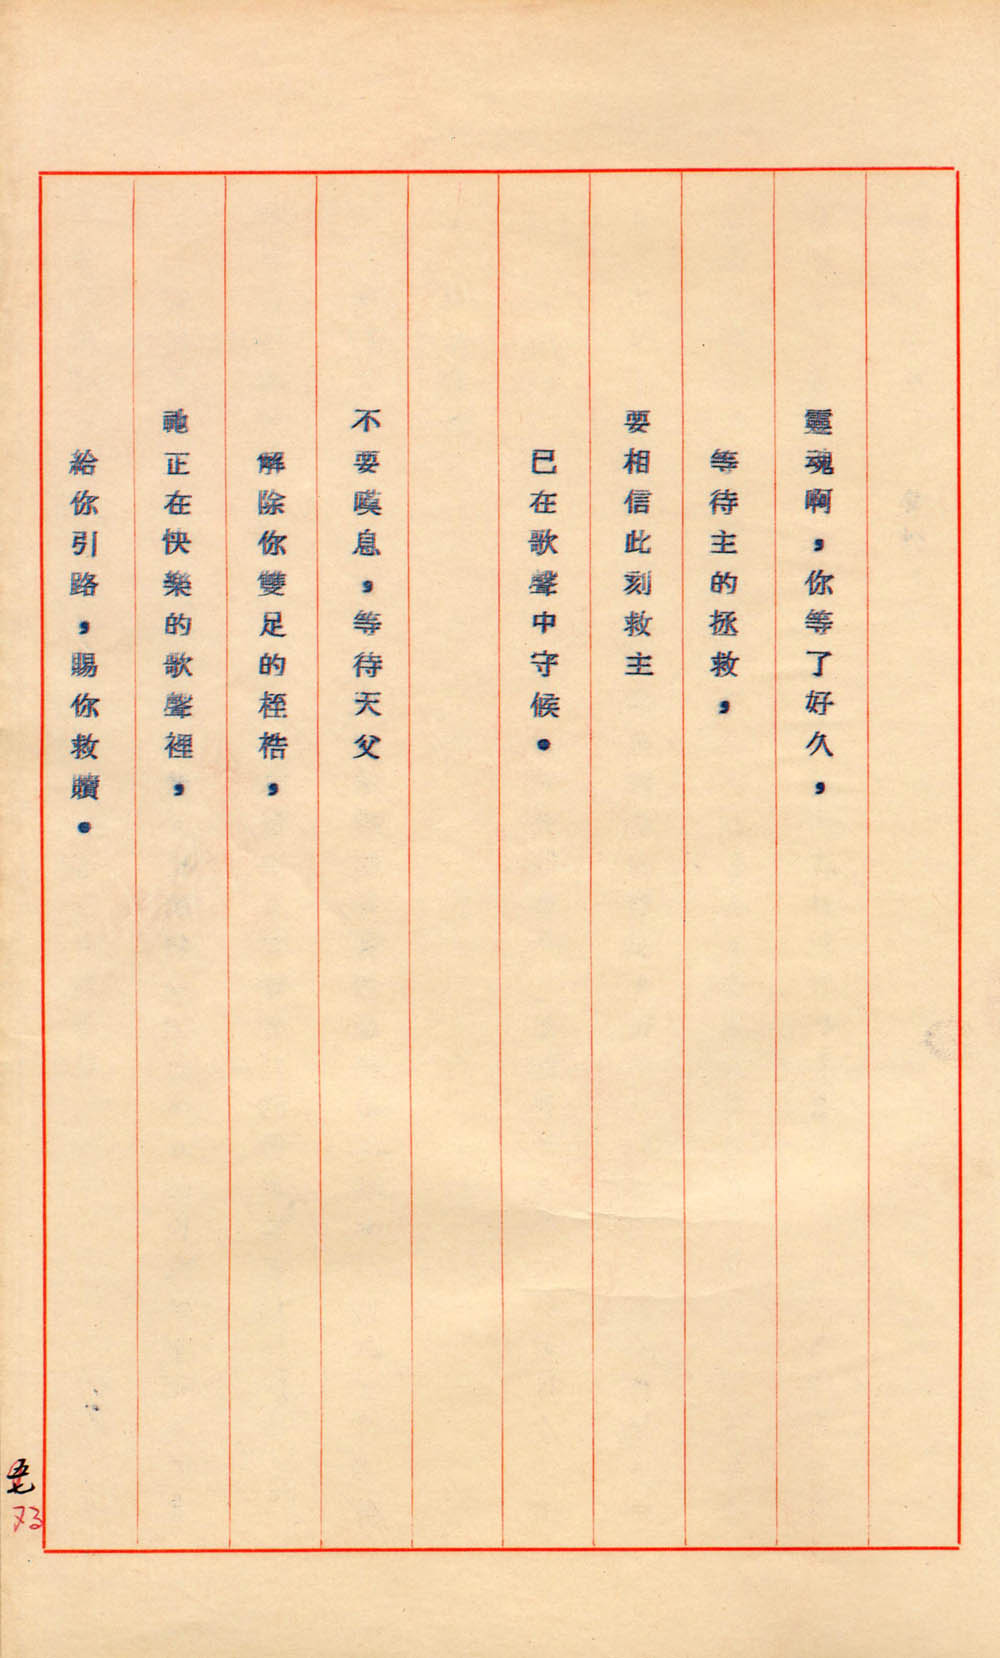 靈魂啊，你等了好久，
等待主的拯救，
要相信此刻救主
已在歌聲中守候。
不要嘆息，等待天父
解除你雙足的桎梏，
祂正在快樂的歌聲裡，
給你引路，賜你救贖。